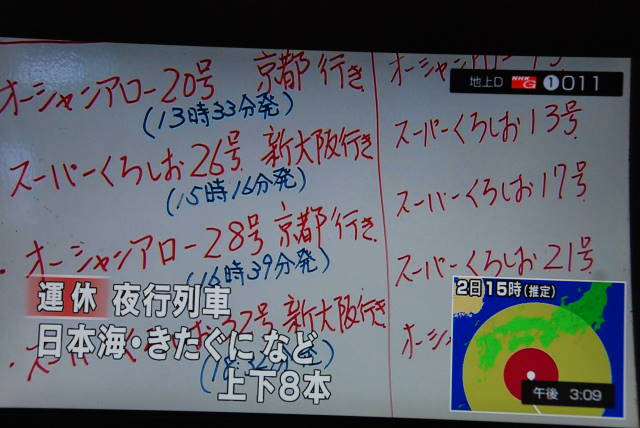 オーシャンアロー20号 京都行き
(13時33分発)
スーパーくろしお26号 新大阪行き
(15時16分発)
・オーシャンアロー28号 京都行き
(16時39分発)
32号 新大阪行き
スーパーくろしお13号
スーパーくろしお17号
スーパーくろしお21号
地上D NHK G 1 011
運休 夜行列車
日本海・きたぐに など
上下8本
2日15時(推定)
午後 3:09